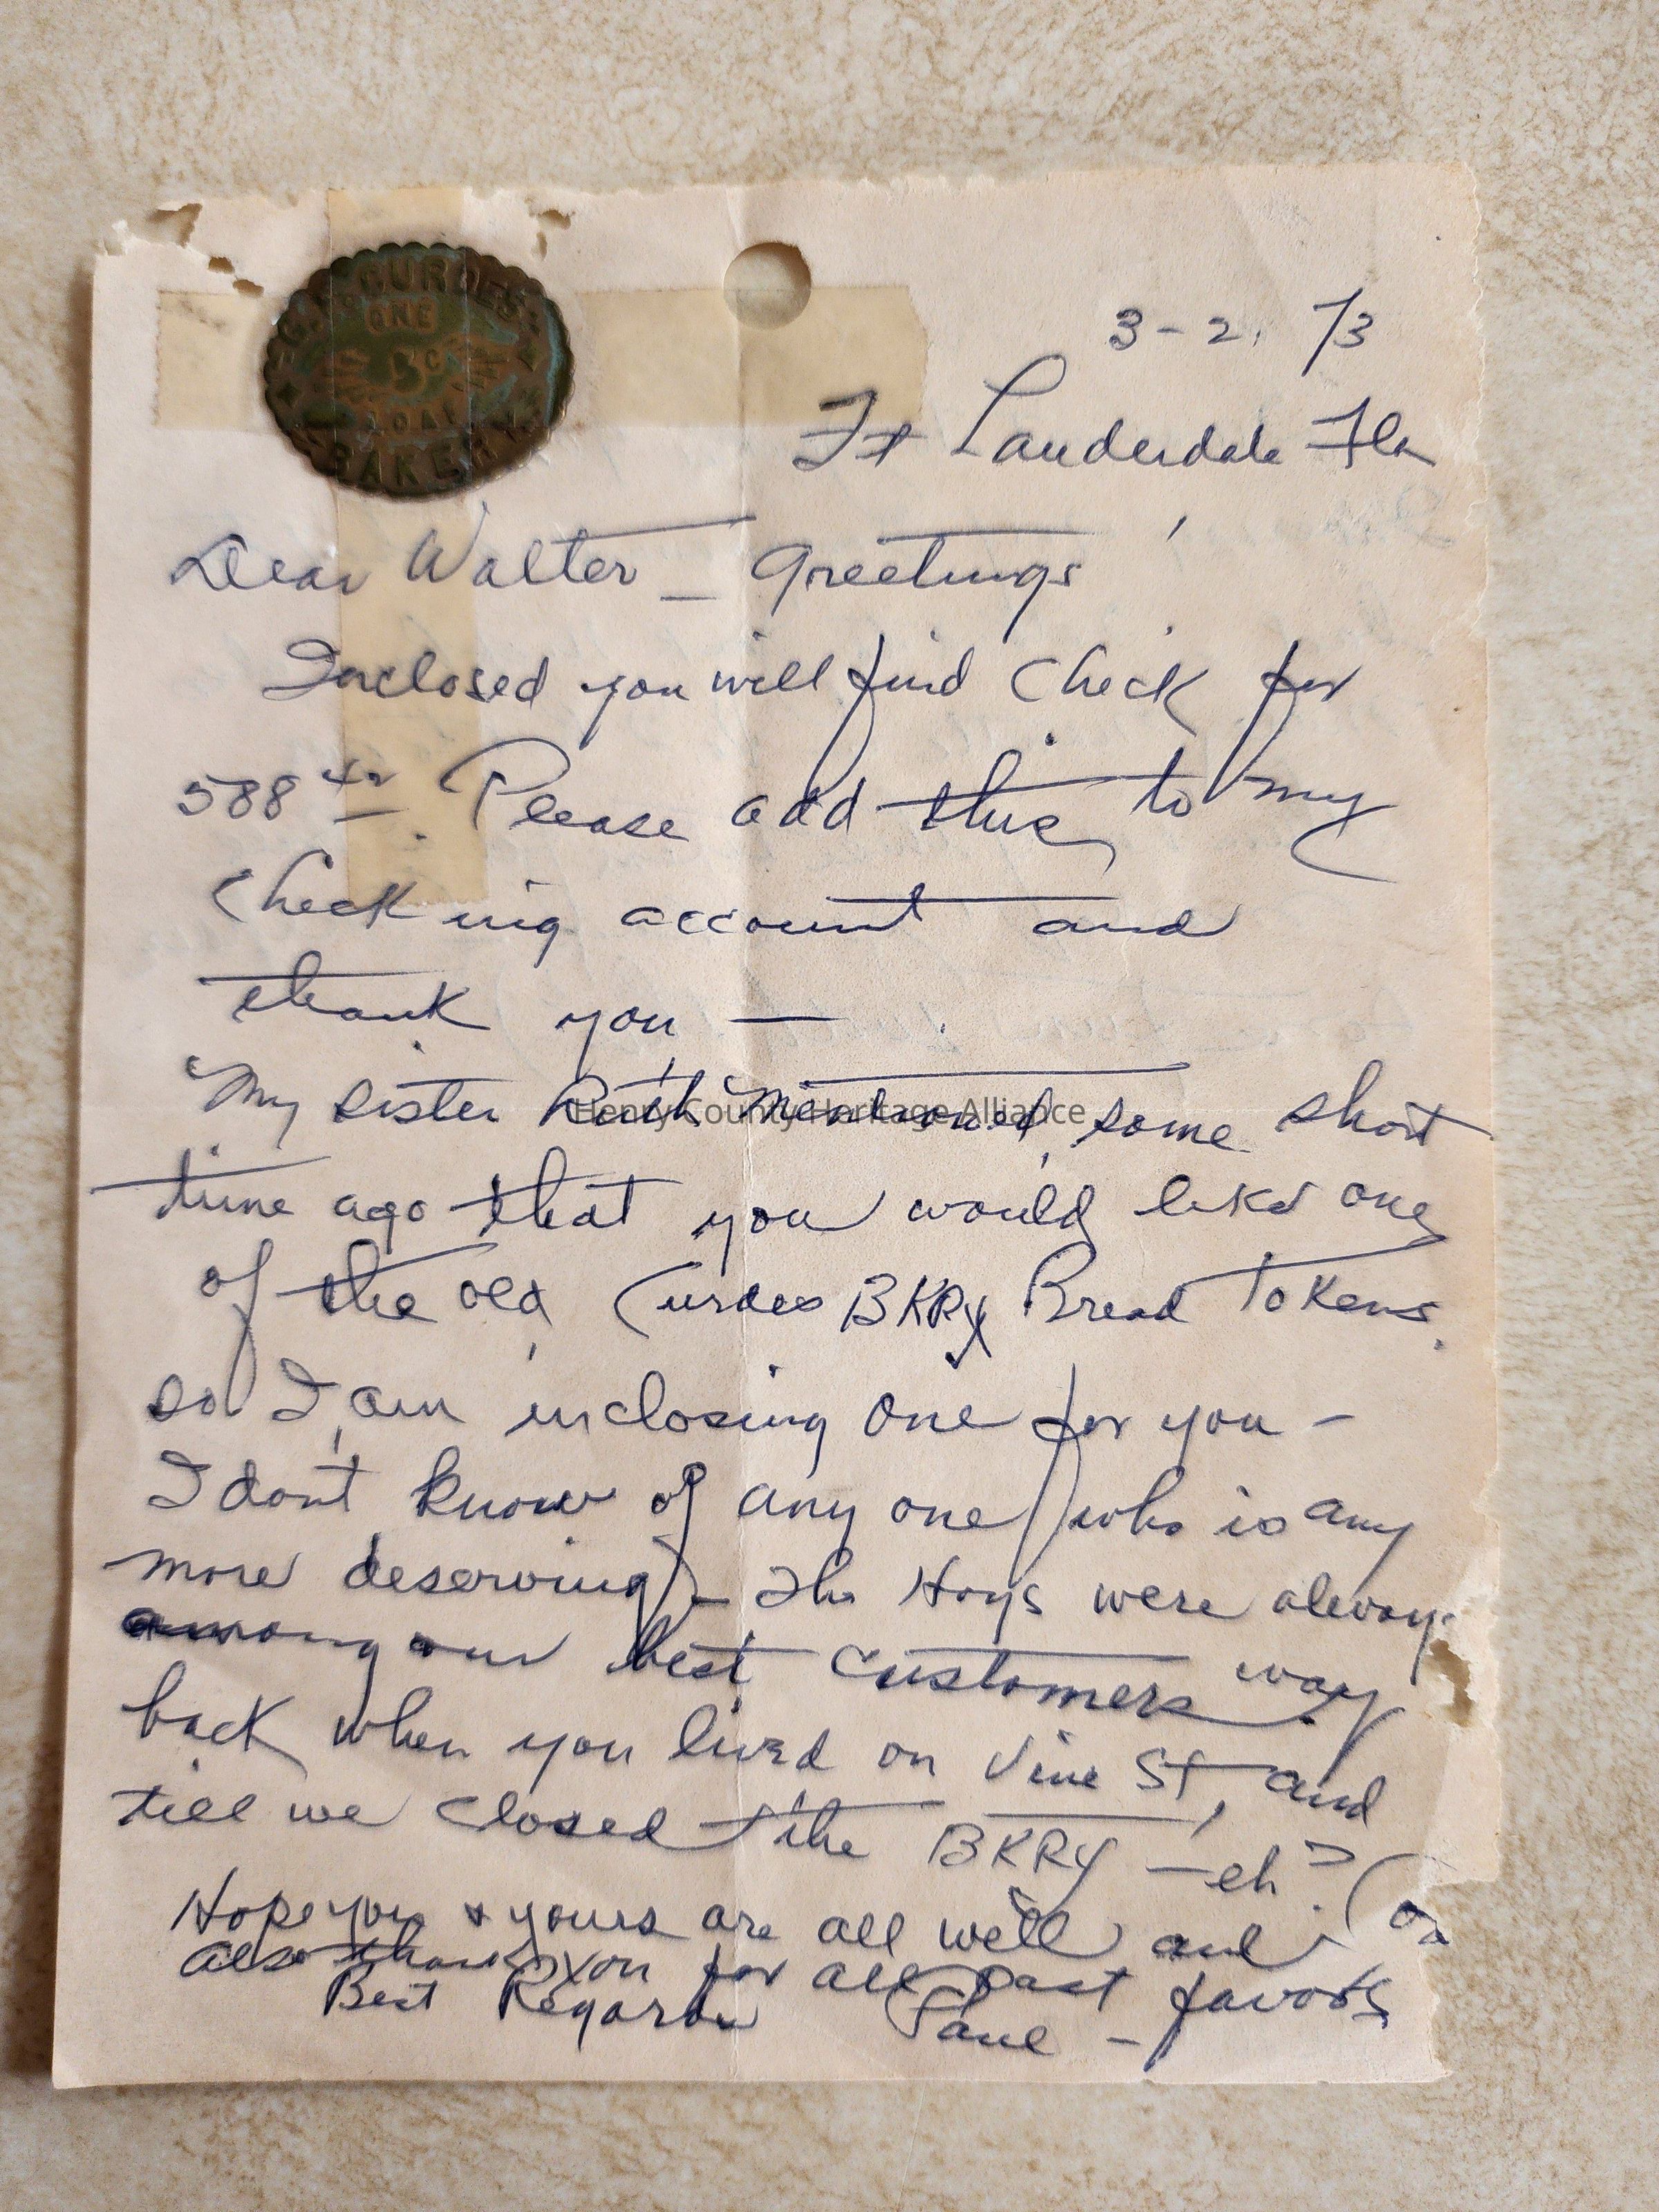 CURDES
ONE
5¢
LOAF
BAKERY
3-2. 73
Ft Lauderdale Fla
Dear Walter – Greetings
Inclosed you will find check for
588 . Please add this to my
checking account and
thank you —
My sister Ruth mentioned some short
time ago that you would like one
of the old Curdes BKRY Bread Tokens.
so I am inclosing one for you –
I don't know of any one who is any
more deserving – The Hoys were always
among our best customers way
back when you lived on Vine St, and
till we closed the BKRY – eh? (
Hope you & yours are all well and
also thank you for all past favors
Best Regards Paul –
Henry County Heritage Alliance